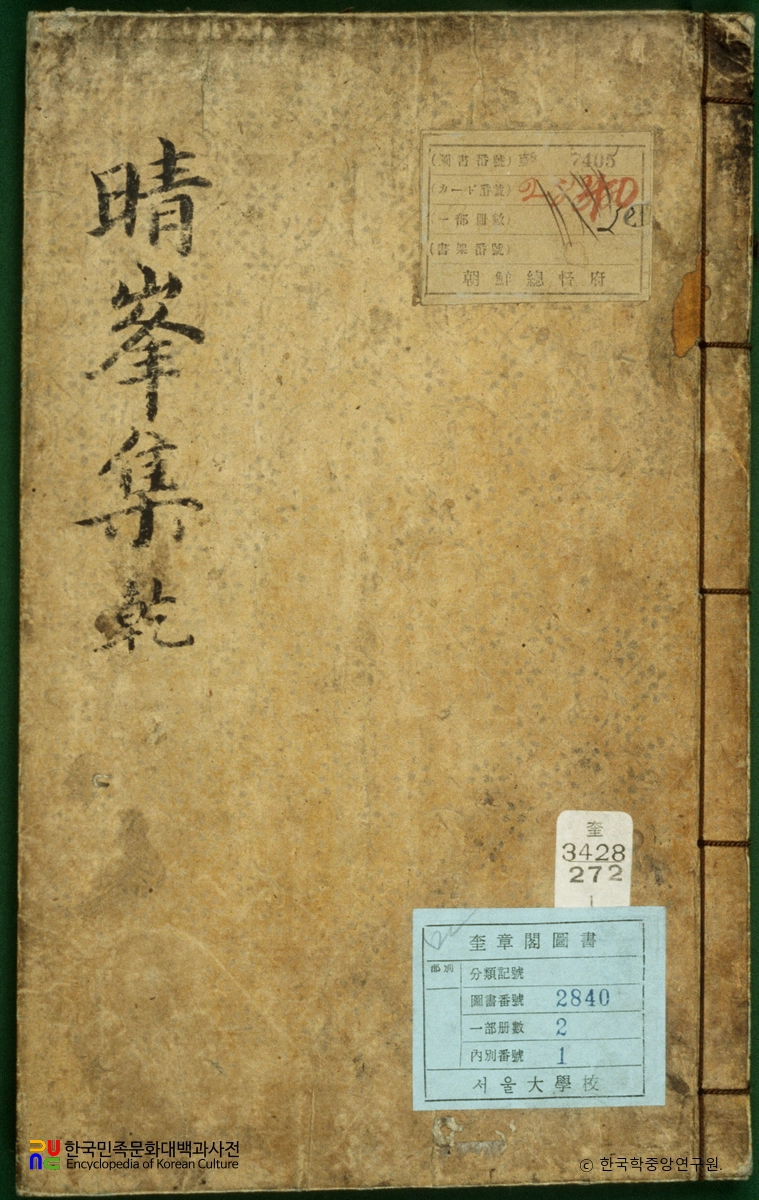 晴峯集 乾
(圖書番號) 7405
(カード番號)
(一部冊數)
(書架番號)
朝鮮總督府
奎
3428
272
1
奎章閣圖書
部別
分類記號
圖書番號 2840
一部册數 2
內別番號 1
서울大學校
한국민족문화대백과사전
Encyclopedia of Korean Culture
© 한국학중앙연구원.